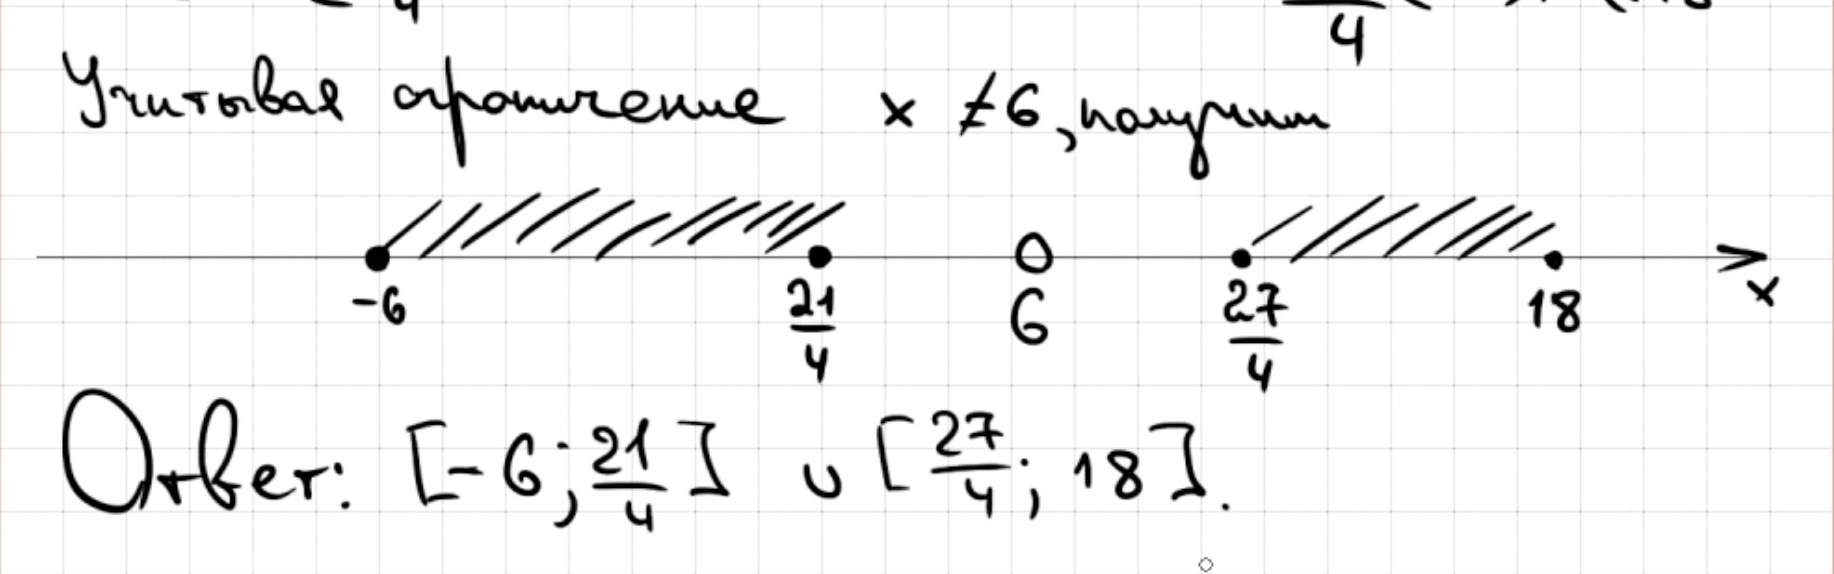 4
4
Учитывая ограничение x ≠ 6, получим
-6 21/4 6 27/4 18 x
Ответ: [-6; 21/4] ∪ [27/4; 18].